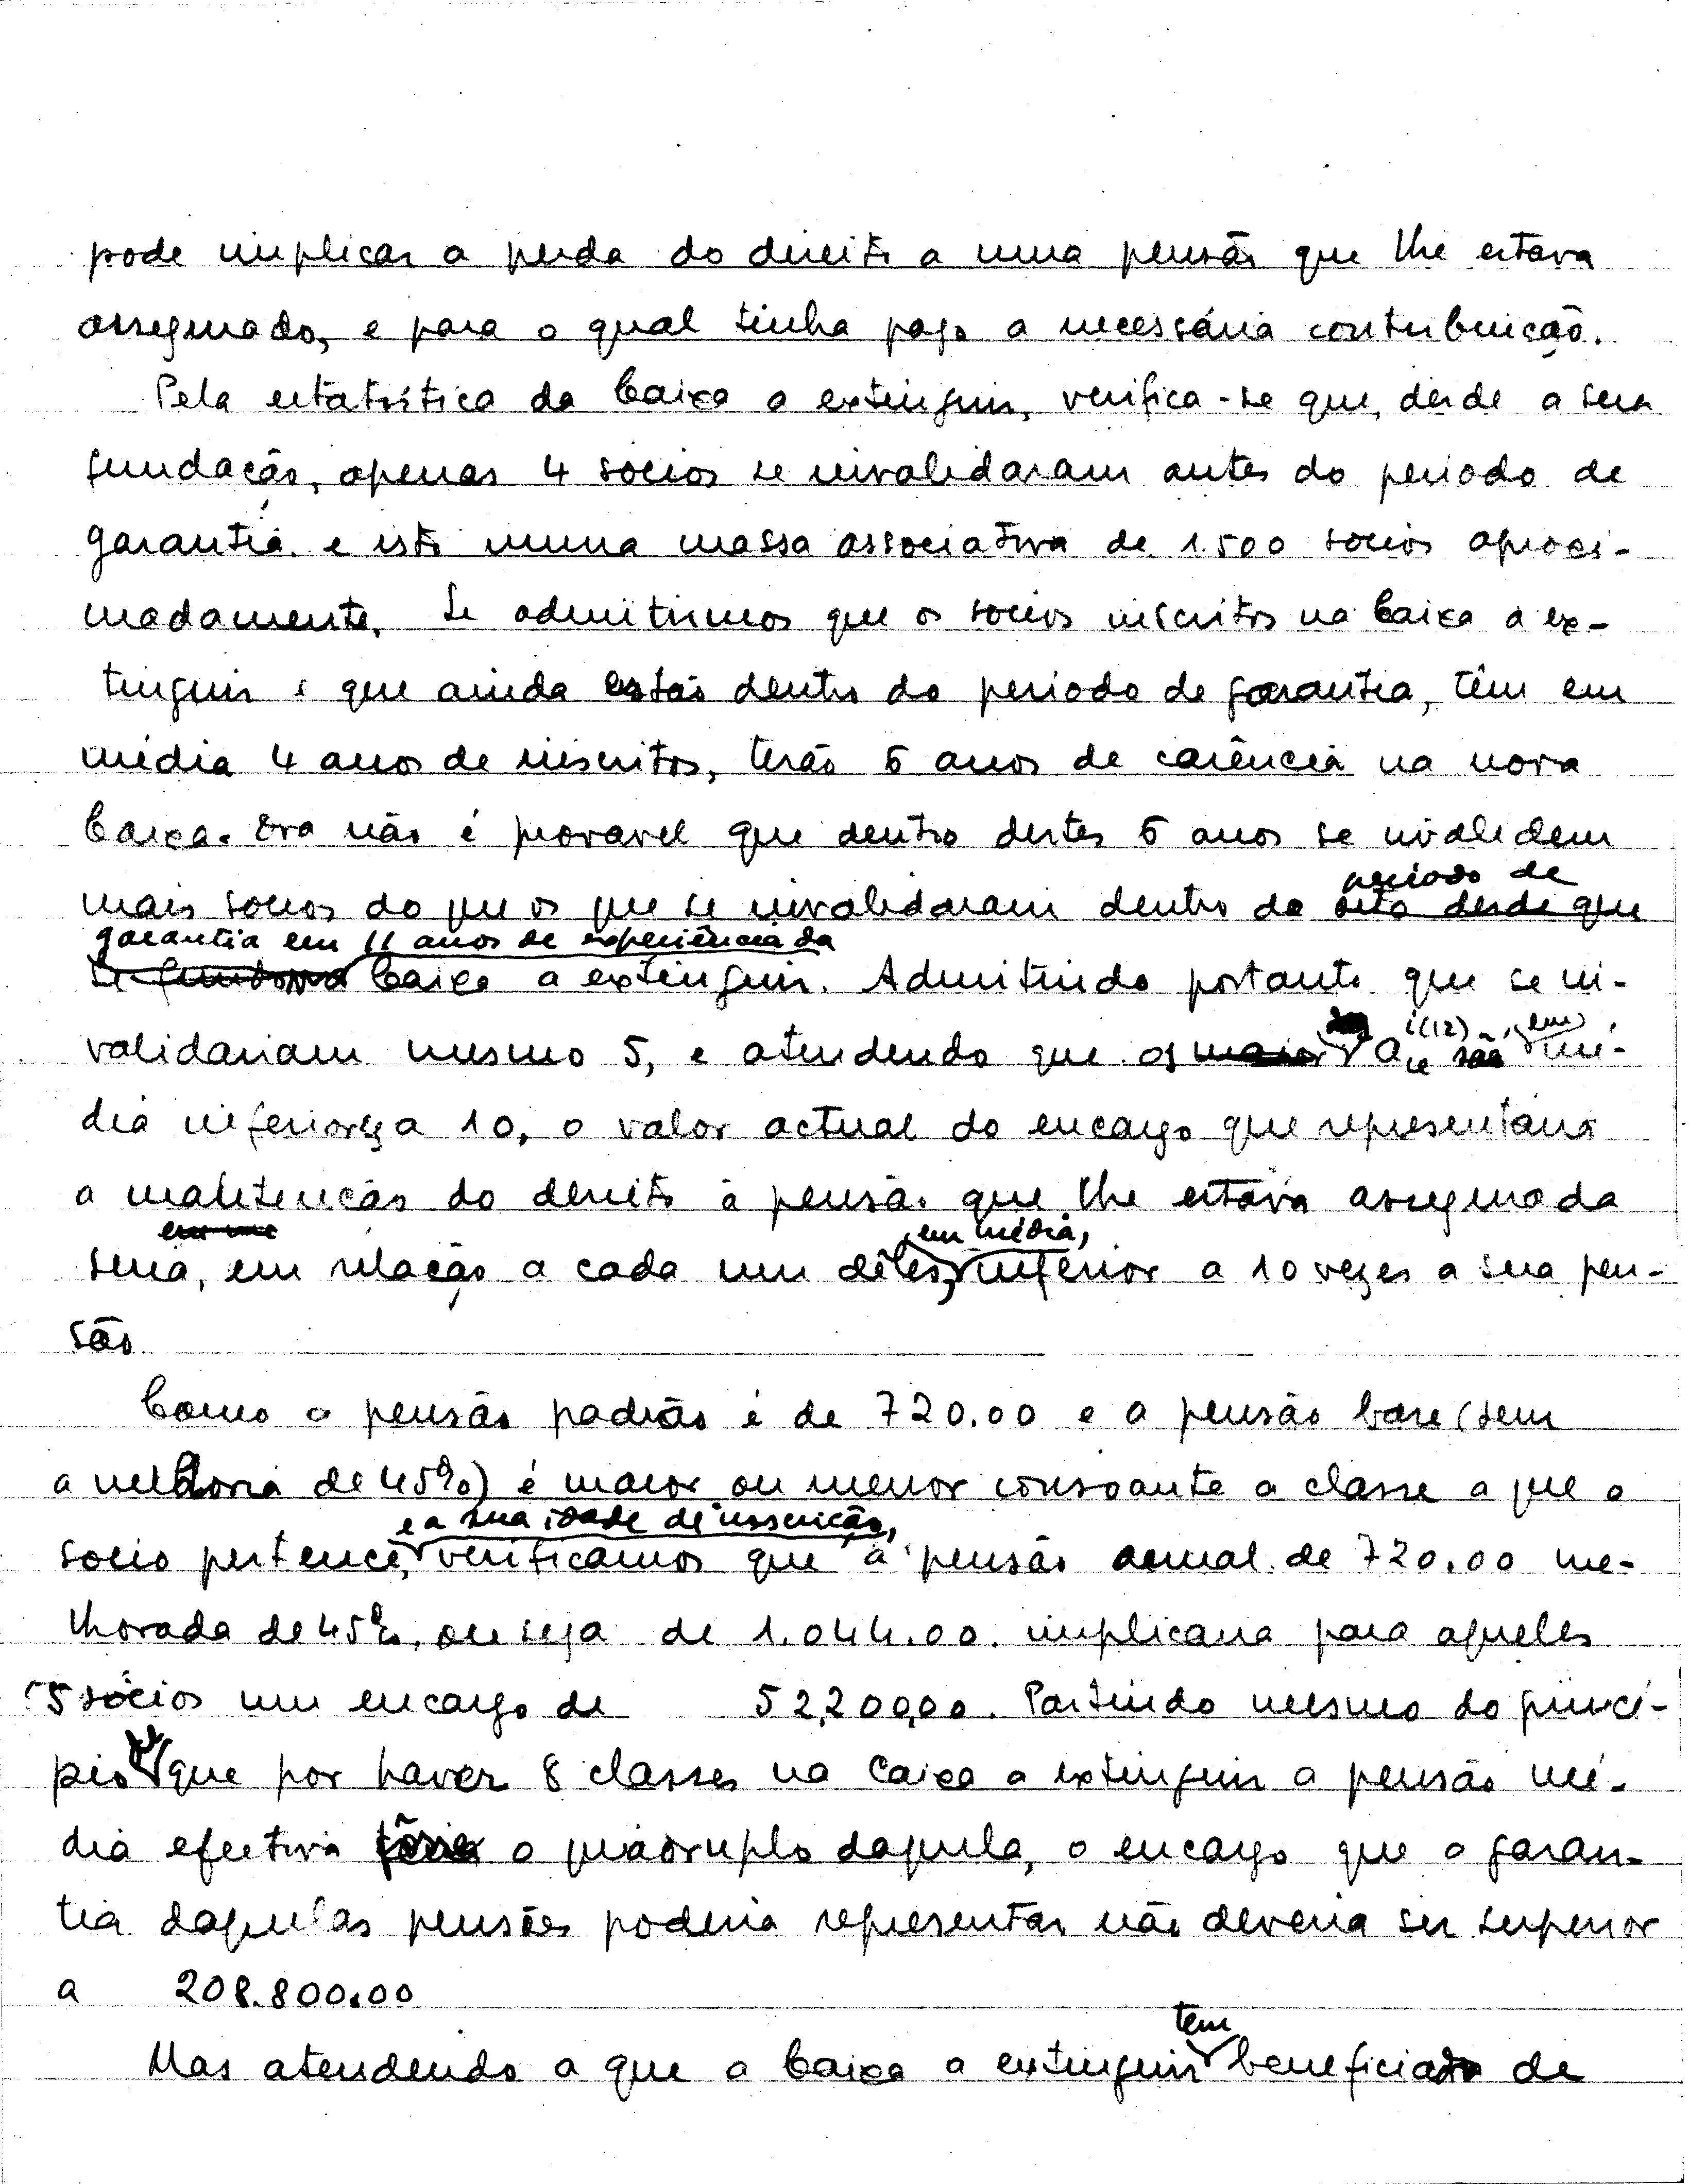 pode implicar a perda do direito a uma pensão que lhe estava
assegurado, e para o qual tinha pago a necessária contribuição.
Pela estatística da Caixa a extinguir, verifica-se que, desde a sua
fundação, apenas 4 socios se invalidaram antes do periodo de
garantia e isto numa massa associativa de 1.500 socios aproxi-
madamente. Se admitirmos que os socios inscritos na Caixa a ex-
tinguir e que ainda estão dentro do periodo de garantia, têm em
média 4 anos de inscritos, terão 6 anos de carência na nova
Caixa. Ora não é provavel que dentro destes 6 anos se invalidem
periodo de
mais socios do que os que se invalidaram dentro do desde que
garantia em 11 anos de experiência da
Caixa a extinguir. Admitindo portanto que se in-
i(12) em
validariam mesmo 5, e atendendo que os a são mé-
dia inferiores a 10, o valor actual do encargo que representaria
a manutenção do direito à pensão que lhe estava assegurada
em média,
seria, em relação a cada um dêles, inferior a 10 vezes a sua pen-
são
Como a pensão padrão é de 720.00 e a pensão base (sem
a melhoria de 45%) é maior ou menor consoante a classe a que o
e a sua idade de inscrição,
socio pertence, verificamos que a pensão anual de 720.00 me-
lhorada de 45%, ou seja de 1.044.00. implicaria para aqueles
5 sócios um encargo de 52,200,00. Partindo mesmo do princí-
pio que por haver 8 classes na Caixa a extinguir a pensão mé-
dia efectiva o quádruplo daquela, o encargo que a garan-
tia daquelas pensões poderia representar não deveria ser superior
a 208.800.00
tem
Mas atendendo a que a Caixa a extinguir beneficiado de